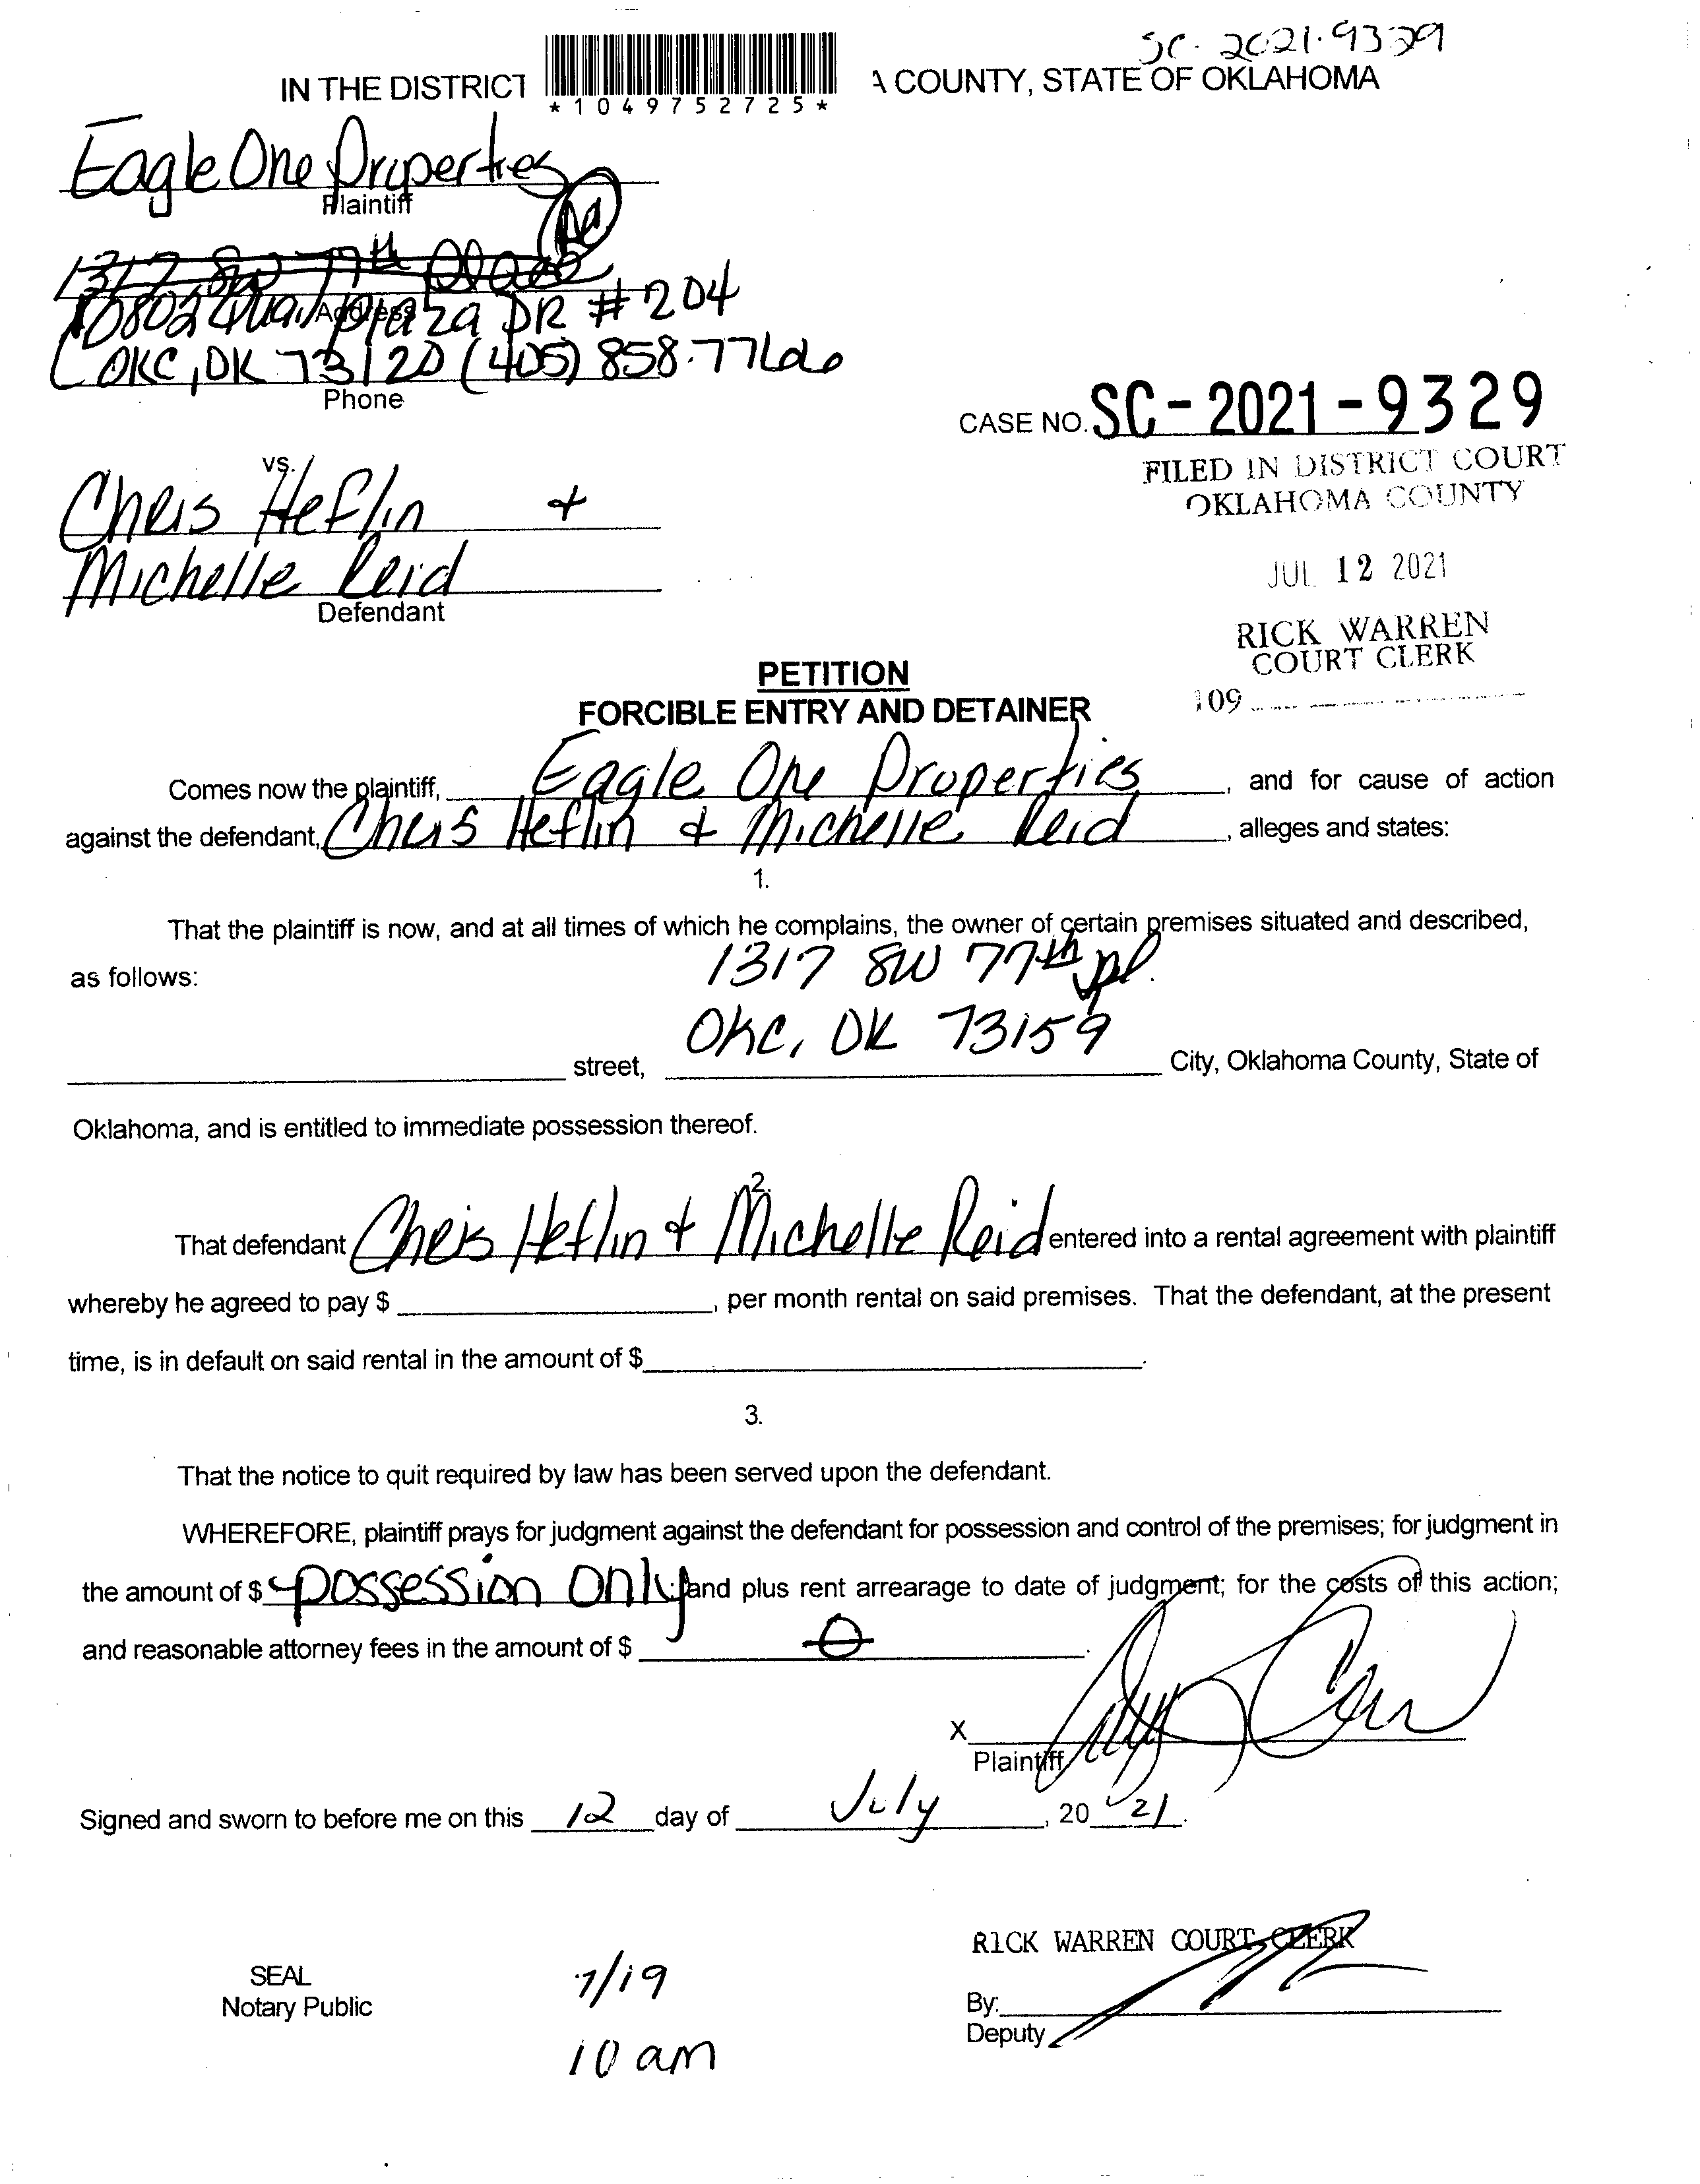 SC-2021-9329
IN THE DISTRICT A COUNTY, STATE OF OKLAHOMA
*1049752725*
Eagle One Properties
Plaintiff
1317 SW 77th Place
10802 Quail plaza DR #204
Address
OKC, OK 73120 (405) 858-7766
Phone
CASE NO. SC-2021-9329
FILED IN DISTRICT COURT
OKLAHOMA COUNTY
vs.
Chris Heflin +
Michelle Reid
Defendant
JUL 12 2021
RICK WARREN
COURT CLERK
109
PETITION
FORCIBLE ENTRY AND DETAINER
Comes now the plaintiff, Eagle One Properties, and for cause of action
against the defendant, Chris Heflin + Michelle Reid, alleges and states:
1.
That the plaintiff is now, and at all times of which he complains, the owner of certain premises situated and described,
as follows: 1317 SW 77th pl.
OKC, OK 73159
street, City, Oklahoma County, State of
Oklahoma, and is entitled to immediate possession thereof.
2.
That defendant Chris Heflin + Michelle Reid entered into a rental agreement with plaintiff
whereby he agreed to pay $ , per month rental on said premises. That the defendant, at the present
time, is in default on said rental in the amount of $ .
3.
That the notice to quit required by law has been served upon the defendant.
WHEREFORE, plaintiff prays for judgment against the defendant for possession and control of the premises; for judgment in
the amount of $ possession only and plus rent arrearage to date of judgment; for the costs of this action;
and reasonable attorney fees in the amount of $ 0.
X
Plaintiff
Signed and sworn to before me on this 12 day of July, 20 21.
RICK WARREN COURT CLERK
SEAL
Notary Public
7/19
10 am
By:
Deputy